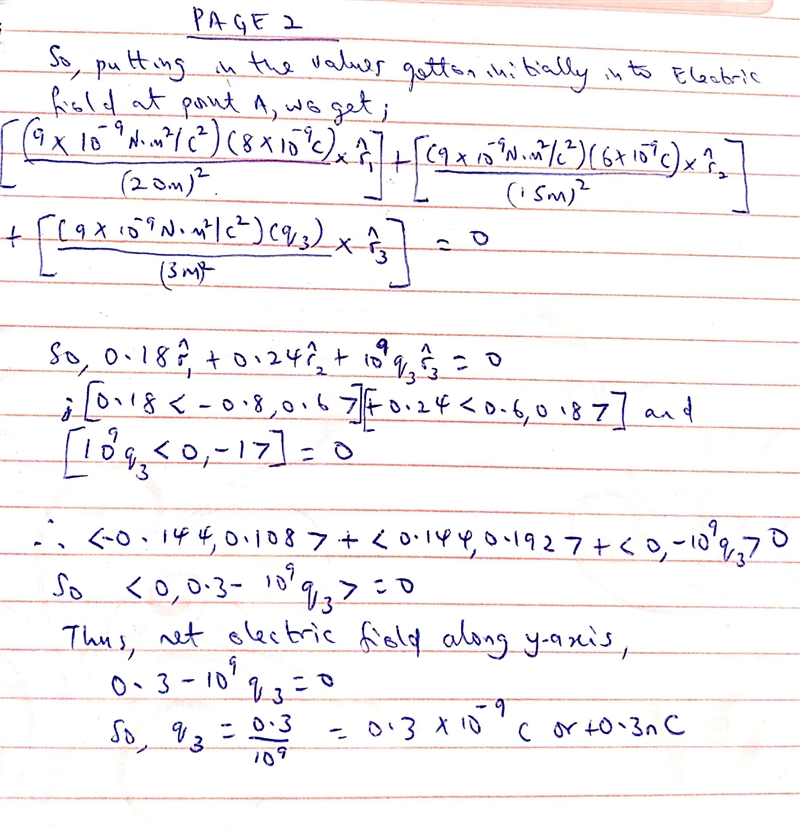 PAGE 2
So, putting in the values gotten initially into Electric
field at point A, we get;
[(9 × 10⁻⁹ N·m²/C²)(8×10⁻⁹C)/(20m)² × r̂₁] + [(9 × 10⁻⁹N·m²/C²)(6×10⁻⁹C)/(15m)² × r̂₂]
+ [(9 × 10⁻⁹ N·m²/C²)(q₃)/(3m)² × r̂₃] = 0
So, 0.18r̂₁ + 0.24r̂₂ + 10⁹q₃r̂₃ = 0
; [0.18 < -0.8, 0.6 >][+ 0.24 < 0.6, 0.8 >] and
[10⁹q₃ < 0, -1 >] = 0
∴ <-0.144, 0.108 > + < 0.144, 0.192 > + < 0, -10⁹q₃ > 0
So < 0, 0.3 - 10⁹q₃ > = 0
Thus, net electric field along y-axis,
0.3 - 10⁹q₃ = 0
So, q₃ = 0.3/10⁹ = 0.3 × 10⁻⁹ C or +0.3nC